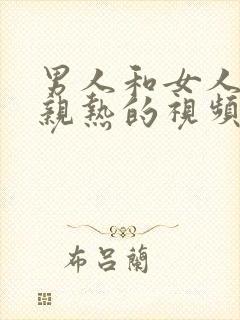 男人和女人
親熱的視頻
布呂蘭